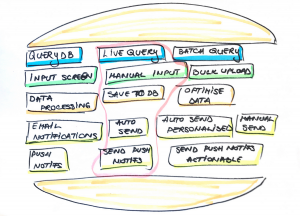 QUERY DB
LIVE QUERY
BATCH QUERY
INPUT SCREEN
MANUAL INPUT
BULK UPLOAD
DATA
PROCESSING
SAVE TO DB
OPTIMISE
DATA
EMAIL
NOTIFICATIONS
AUTO
SEND
AUTO SEND
PERSONALISED
MANUAL
SEND
PUSH
NOTIFS
SEND PUSH
NOTIFS
SEND PUSH NOTIFS
ACTIONABLE